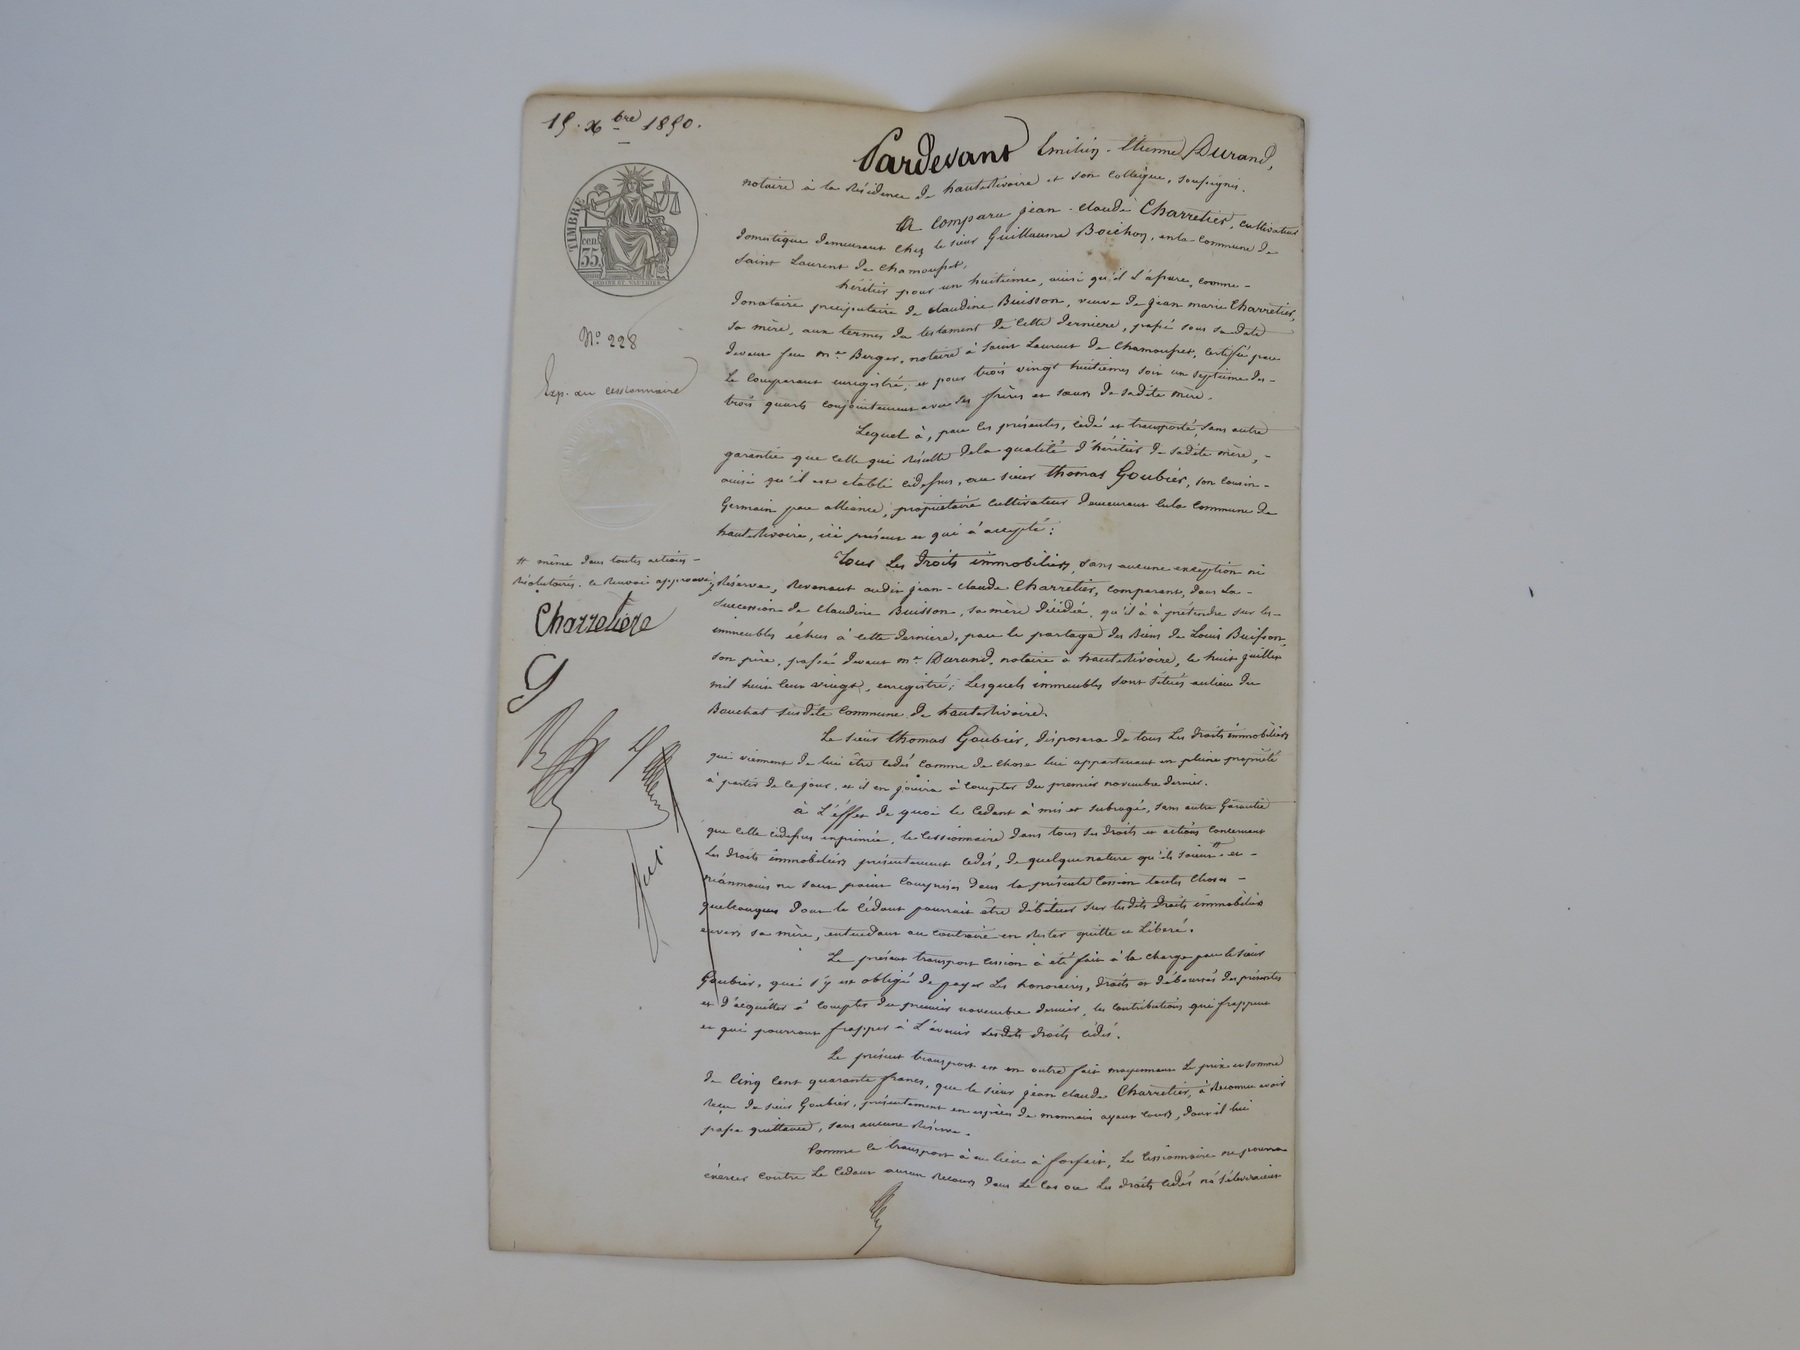 15. Xbre 1850.
TIMBRE
cen.
35
No. 228
Exp. au cessionnaire
# même dans toutes actions
résolutoires. ce renvoi approuvé
Charretière
Pardevant Emilien-Etienne Durand,
notaire à la résidence de hauterivoire et son collègue, soussignés.
A comparu jean-claude Charretier, cultivateur
domestique demeurant chez le sieur Guillaume Boichon, en la commune de
Saint Laurent de Chamousset.
héritier pour un huitième, ainsi qu'il l'assure, comme
donataire préciputaire de claudine Buisson, veuve de jean marie Charretier,
sa mère, aux termes du testament de cette dernière, passé sous sa date
devant feu me. Berger, notaire à Saint Laurent de Chamousset, certifié par
le comparant enregistré, et pour trois vingt huitièmes soit un septième des
trois quarts conjointement avec ses frères et sœurs de sadite mère.
Lequel à, par les présentes, cédé et transporté, sans autre
garantie que celle qui résulte de la qualité d'héritier de sadite mère,
ainsi qu'il est établi cidessus, au sieur thomas Goubier, son cousin
Germain par alliance, propriétaire cultivateur demeurant en la commune de
hauterivoire, ici présent et qui à accepté:
Tous les droits immobiliers, sans aucune exception ni
réserve, revenant audit jean-claude Charretier, comparant, dans la
succession de claudine Buisson, sa mère décédée, qu'il à à prétendre sur les
immeubles échus à cette dernière, par le partage des Biens de Louis Buisson,
son père, passé devant me. Durand, notaire à hauterivoire, le huit juillet
mil huit cent vingt, enregistré; Lesquels immeubles sont situés au lieu du
Bouchat susdite commune de hauterivoire.
Le sieur thomas Goubier, disposera de tous les droits immobiliers
qui viennent de lui être cédés comme de chose lui appartenant en pleine propriété
à partir de ce jour, et il en jouira à compter du premier novembre dernier.
à L'éffet de quoi le cédant à mis et subrogé, sans autre Garantie
que celle cidessus exprimée, le cessionnaire dans tous ses droits et actions concernant
les droits immobiliers présentement cédés, de quelque nature qu'ils soient # et
néanmoins ne sont point comprises dans la présente cession toutes choses
quelconques dont le cédant pourrait être débiteur sur lesdits droits immobiliers
envers sa mère, entendant au contraire en rester quitte et Libéré.
Le présent transport cession à été fait à la charge par le sieur
Goubier, qui s'y est obligé de payer les honoraires, droits et déboursés des présentes
et d'acquitter à compter du premier novembre dernier, les contributions qui frappent
et qui pourront frapper à L'avenir lesdits droits cédés.
Le présent transport est en outre fait moyennant le prix et somme
de Cinq Cent quarante francs, que le sieur jean claude Charretier, à Reconnu avoir
reçu du sieur Goubier, présentement en espèces de monnaie ayant cours, dont il lui
passe quittance, sans aucune réserve.
Comme ce transport à eu lieu à forfait, le cessionnaire ne pourra
éxercer contre le cédant aucun recours dans le cas où les droits cédés ne s'élèveraient